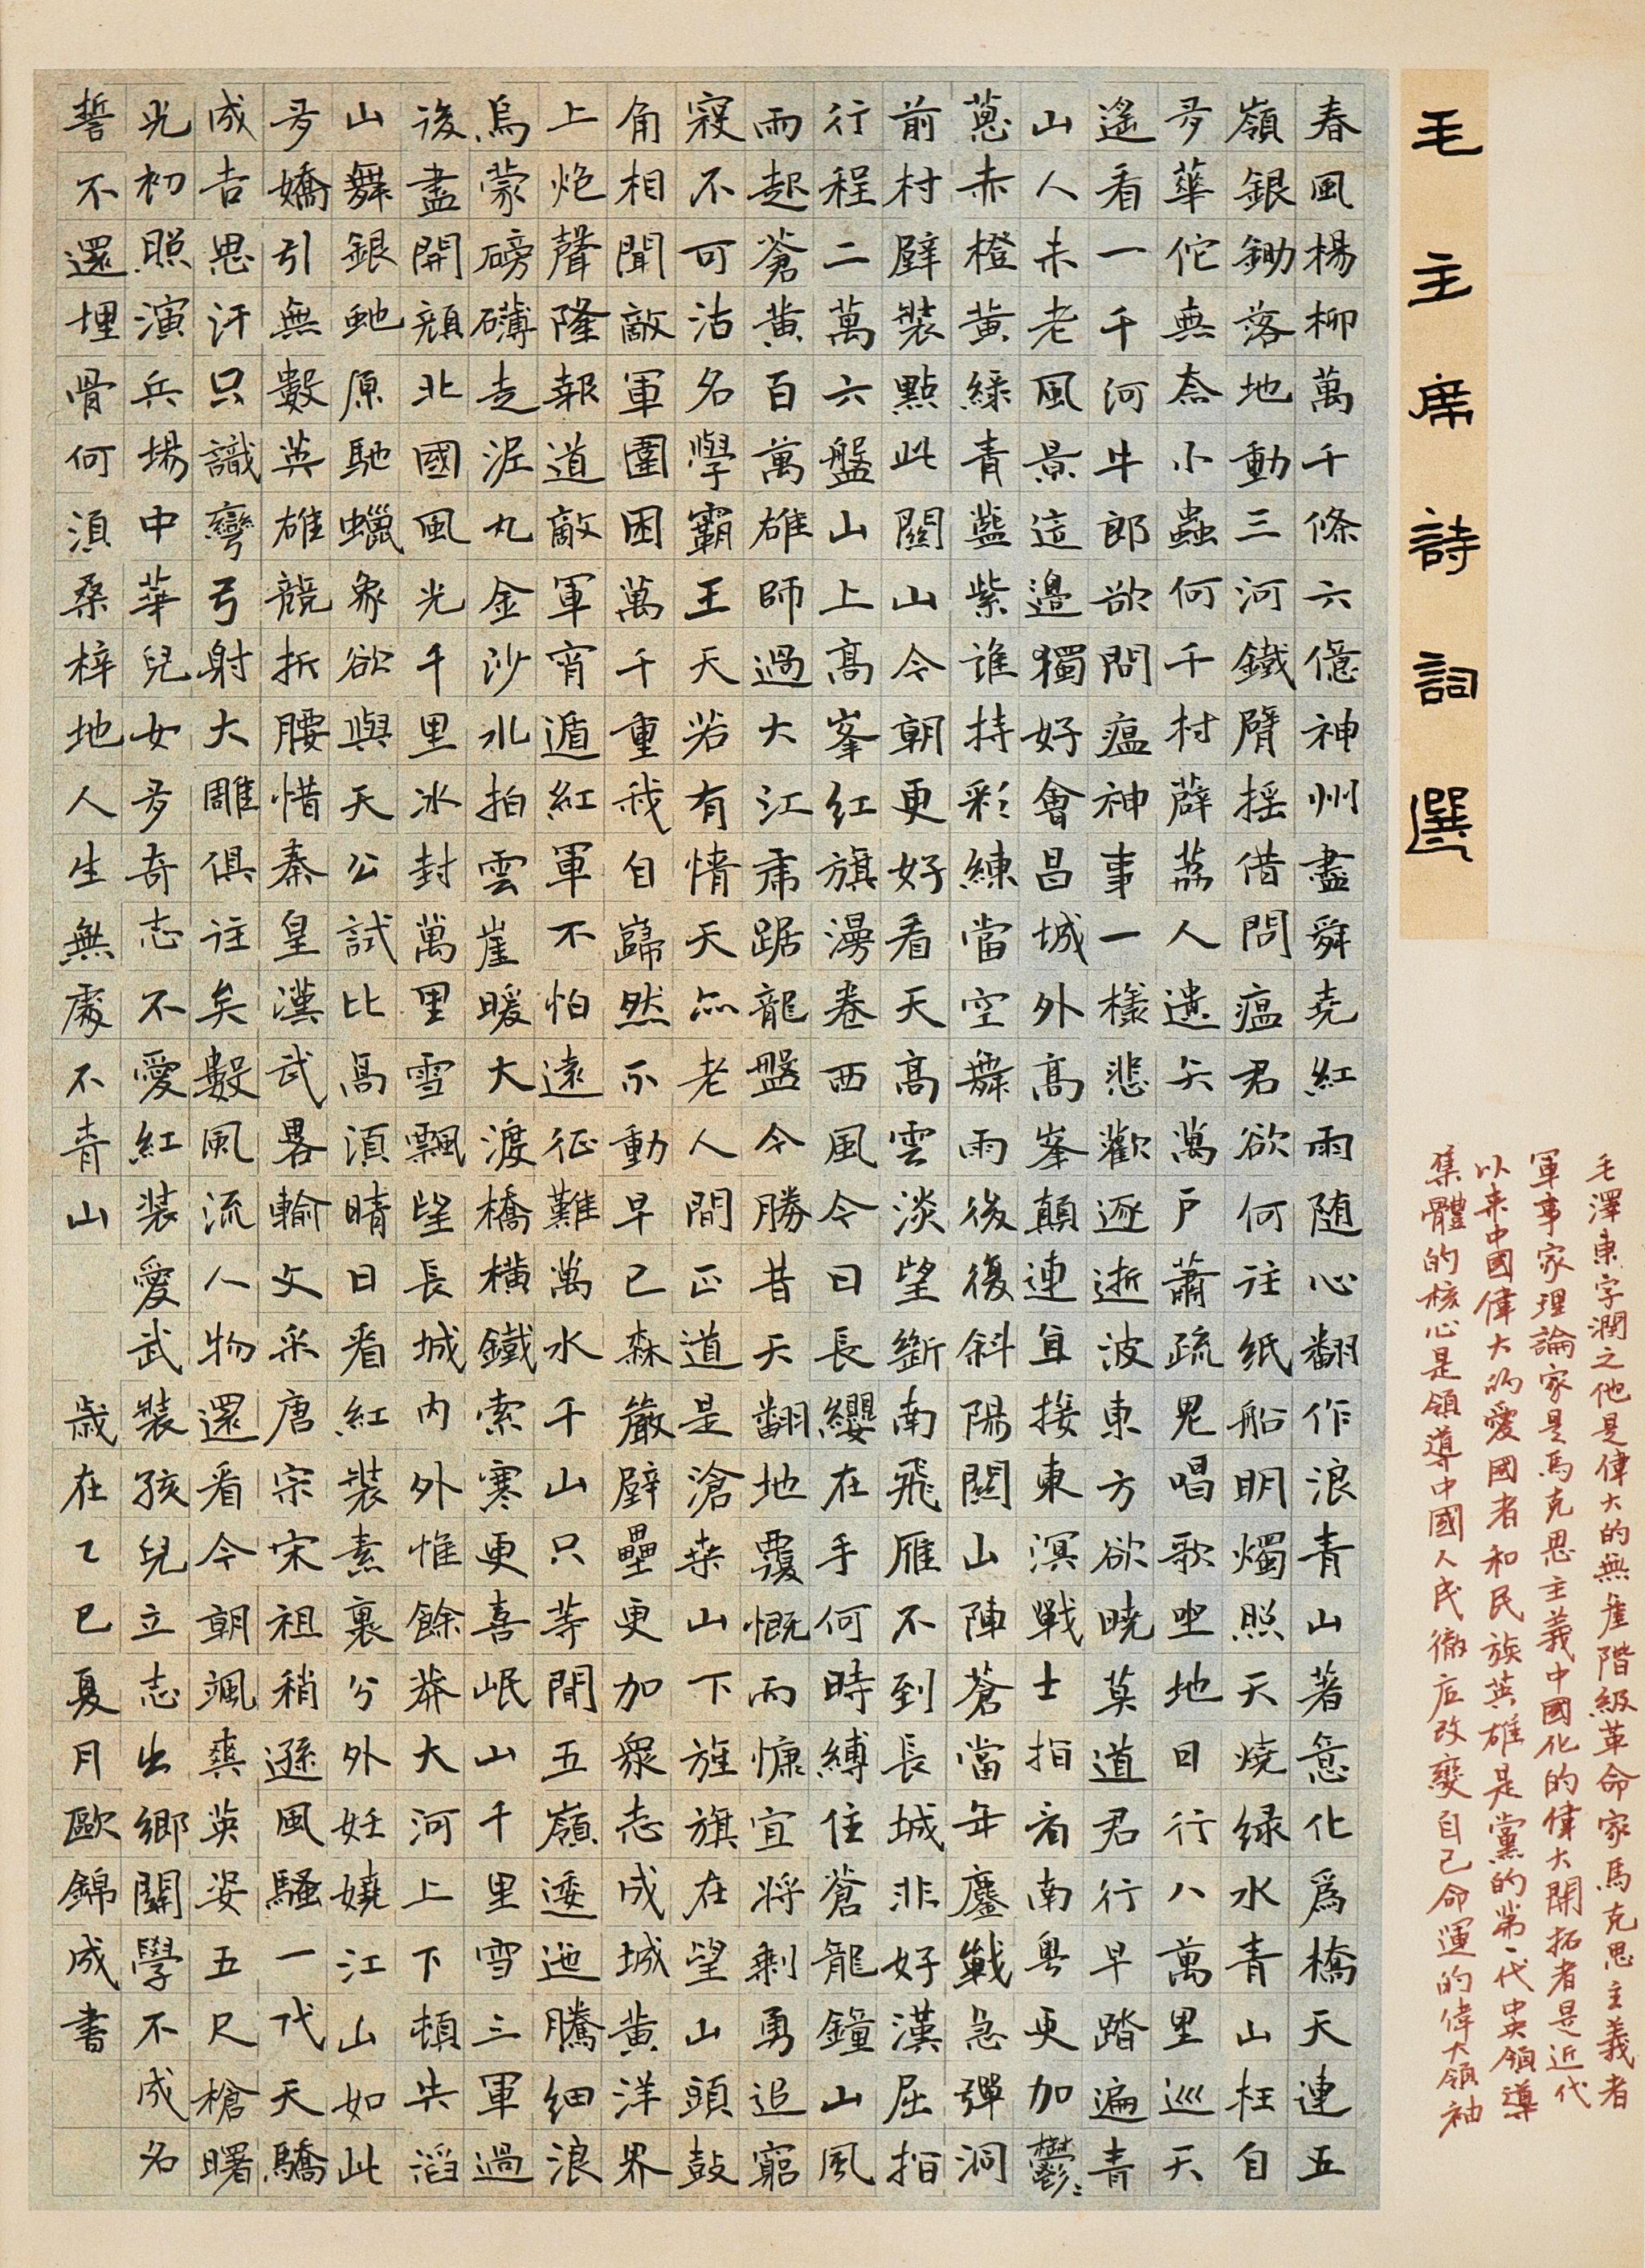 毛主席詩詞選
毛澤東字潤之他是偉大的無產階級革命家馬克思主義者
軍事家理論家是馬克思主義中國化的偉大開拓者是近代
以来中國偉大的愛國者和民族英雄是黨的第一代中央領導
集體的核心是領導中國人民徹底改變自己命運的偉大領袖
春風楊柳萬千條六億神州盡舜堯紅雨随心翻作浪青山著意化爲橋天連五
嶺銀鋤落地動三河鐵臂摇借問瘟君欲何往紙船明燭照天燒緑水青山枉自
多華佗無奈小蟲何千村薜荔人遺矢萬户蕭疏鬼唱歌坐地日行八萬里巡天
遙看一千河牛郎欲問瘟神事一樣悲歡逐逝波東方欲曉莫道君行早踏遍青
山人未老風景這邊獨好會昌城外高峯顛連直接東溟戰士指看南粤更加鬱〻
蔥赤橙黄緑青藍紫誰持彩練當空舞雨後復斜陽關山陣蒼當年鏖戰急彈洞
前村壁裝點此關山今朝更好看天高雲淡望斷南飛雁不到長城非好漢屈指
行程二萬六盤山上高峯紅旗漫卷西風今日長纓在手何時縛住蒼龍鐘山風
雨起蒼黄百萬雄師過大江虎踞龍盤今勝昔天翻地覆慨而慷宜將剩勇追窮
寇不可沽名學霸王天若有情天亦老人間正道是滄桑山下旌旗在望山頭鼓
角相聞敵軍圍困萬千重我自巋然不動早已森嚴壁壘更加衆志成城黄洋界
上炮聲隆報道敵軍宵遁紅軍不怕遠征難萬水千山只等閒五嶺逶迤騰細浪
烏蒙磅礴走泥丸金沙水拍雲崖暖大渡橋横鐵索寒更喜岷山千里雪三軍過
後盡開顏北國風光千里冰封萬里雪飄望長城内外惟餘莽大河上下頓失滔
山舞銀蛇原馳蠟象欲與天公試比高須晴日看紅裝素裹分外妊嬈江山如此
多嬌引無數英雄競折腰惜秦皇漢武畧輸文采唐宗宋祖稍遜風騷一代天驕
成吉思汗只識彎弓射大雕俱往矣數風流人物還看今朝颯爽英姿五尺槍曙
光初照演兵場中華兒女多奇志不愛紅裝愛武裝孩兒立志出鄉關學不成名
誓不還埋骨何須桑梓地人生無處不青山 歲在乙巳夏月歐錦成書